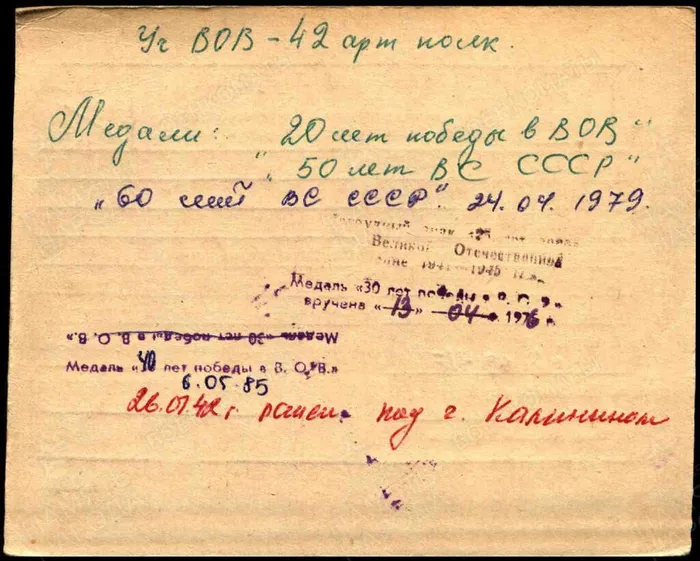 Уч ВОВ - 42 арт полк.
Медали: "20 лет победы в ВОВ"
"50 лет ВС СССР"
"60 лет ВС СССР". 24.04.1979.
Нагрудный знак «25 лет
Великой Отечественной
1941—1945 гг.»
Медаль «30 лет победы в В. О. В.»
вручена «13» 04 1976
Медаль «30 лет победы в В. О. В.»
Медаль «40 лет победы в В. О. В.»
6.05.85
ранен под г. Калинином